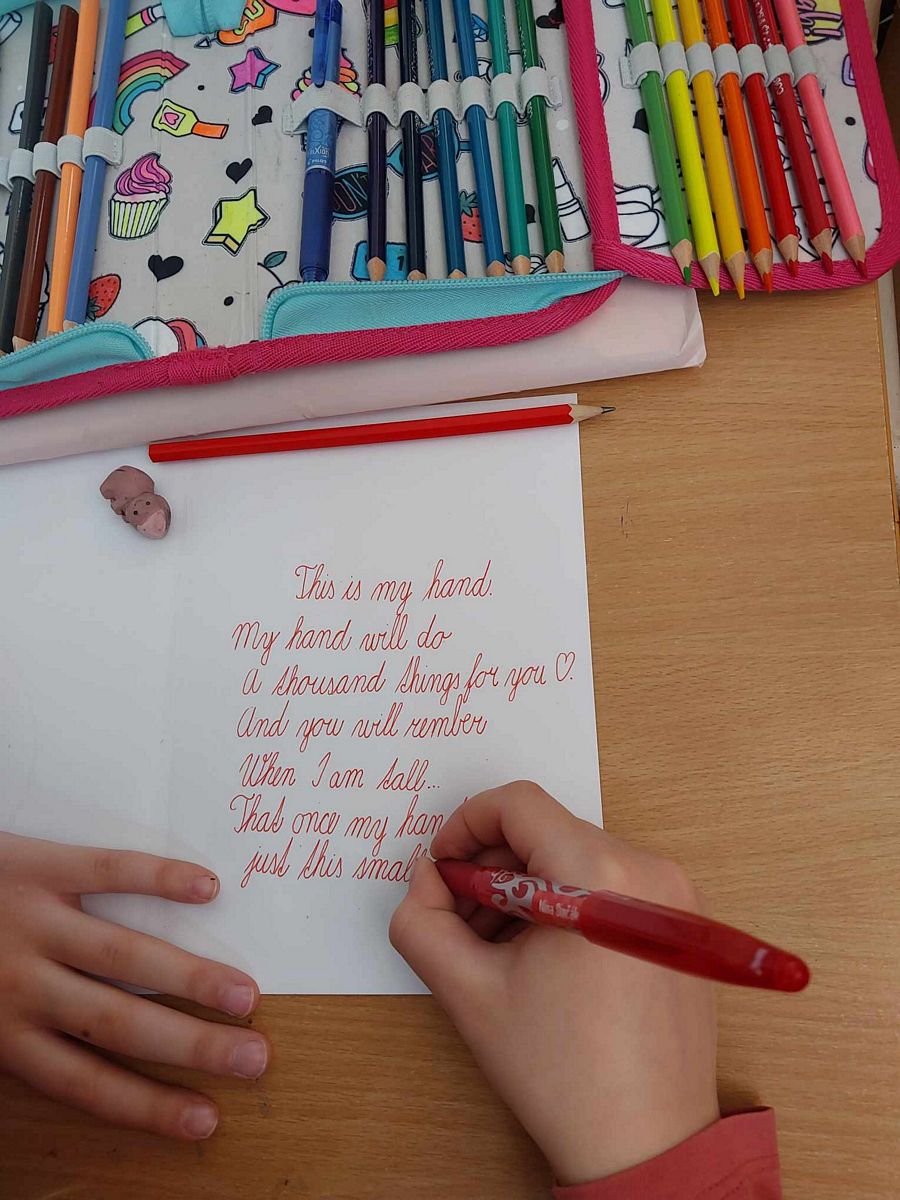 This is my hand.
My hand will do
A thousand things for you ♡.
And you will rember
When I am tall...
That once my han
just this small